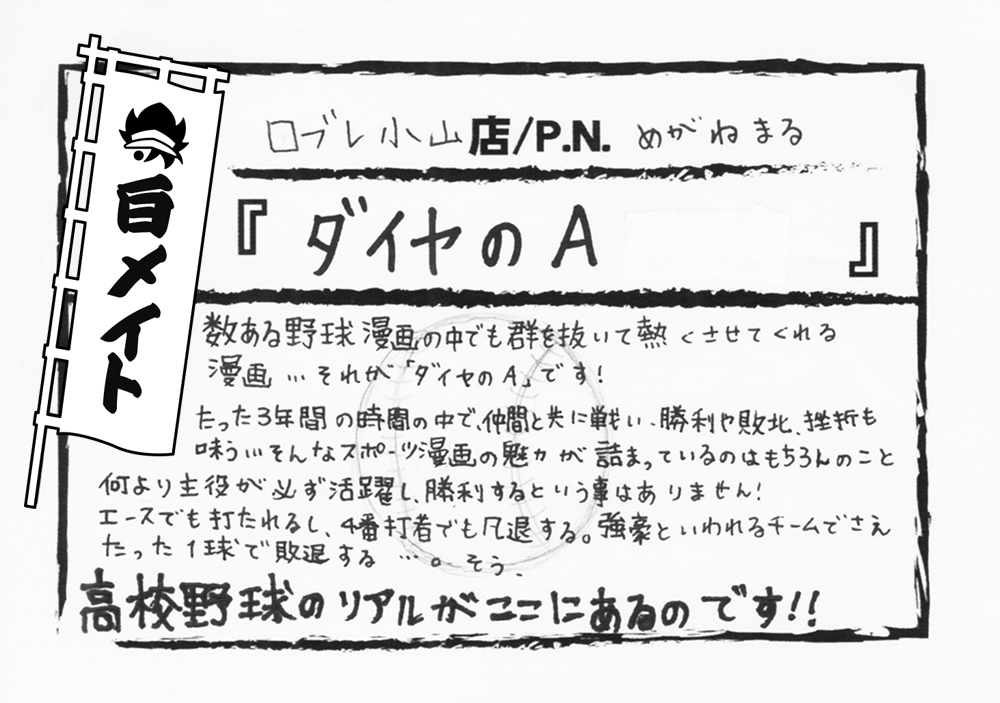 盲メイト
ロブレ小山店/P.N. めがねまる
『ダイヤのA』
数ある野球漫画の中でも群を抜いて熱くさせてくれる
漫画…それが「ダイヤのA」です!
たった3年間の時間の中で、仲間と共に戦い、勝利や敗北、挫折も
味う…そんなスポーツ漫画の魅力が詰まっているのはもちろんのこと
何より主役が必ず活躍し、勝利するという事はありません!
エースでも打たれるし、4番打者でも凡退する。強豪といわれるチームでさえ
たった1球で敗退する…。そう、
高校野球のリアルがここにあるのです!!